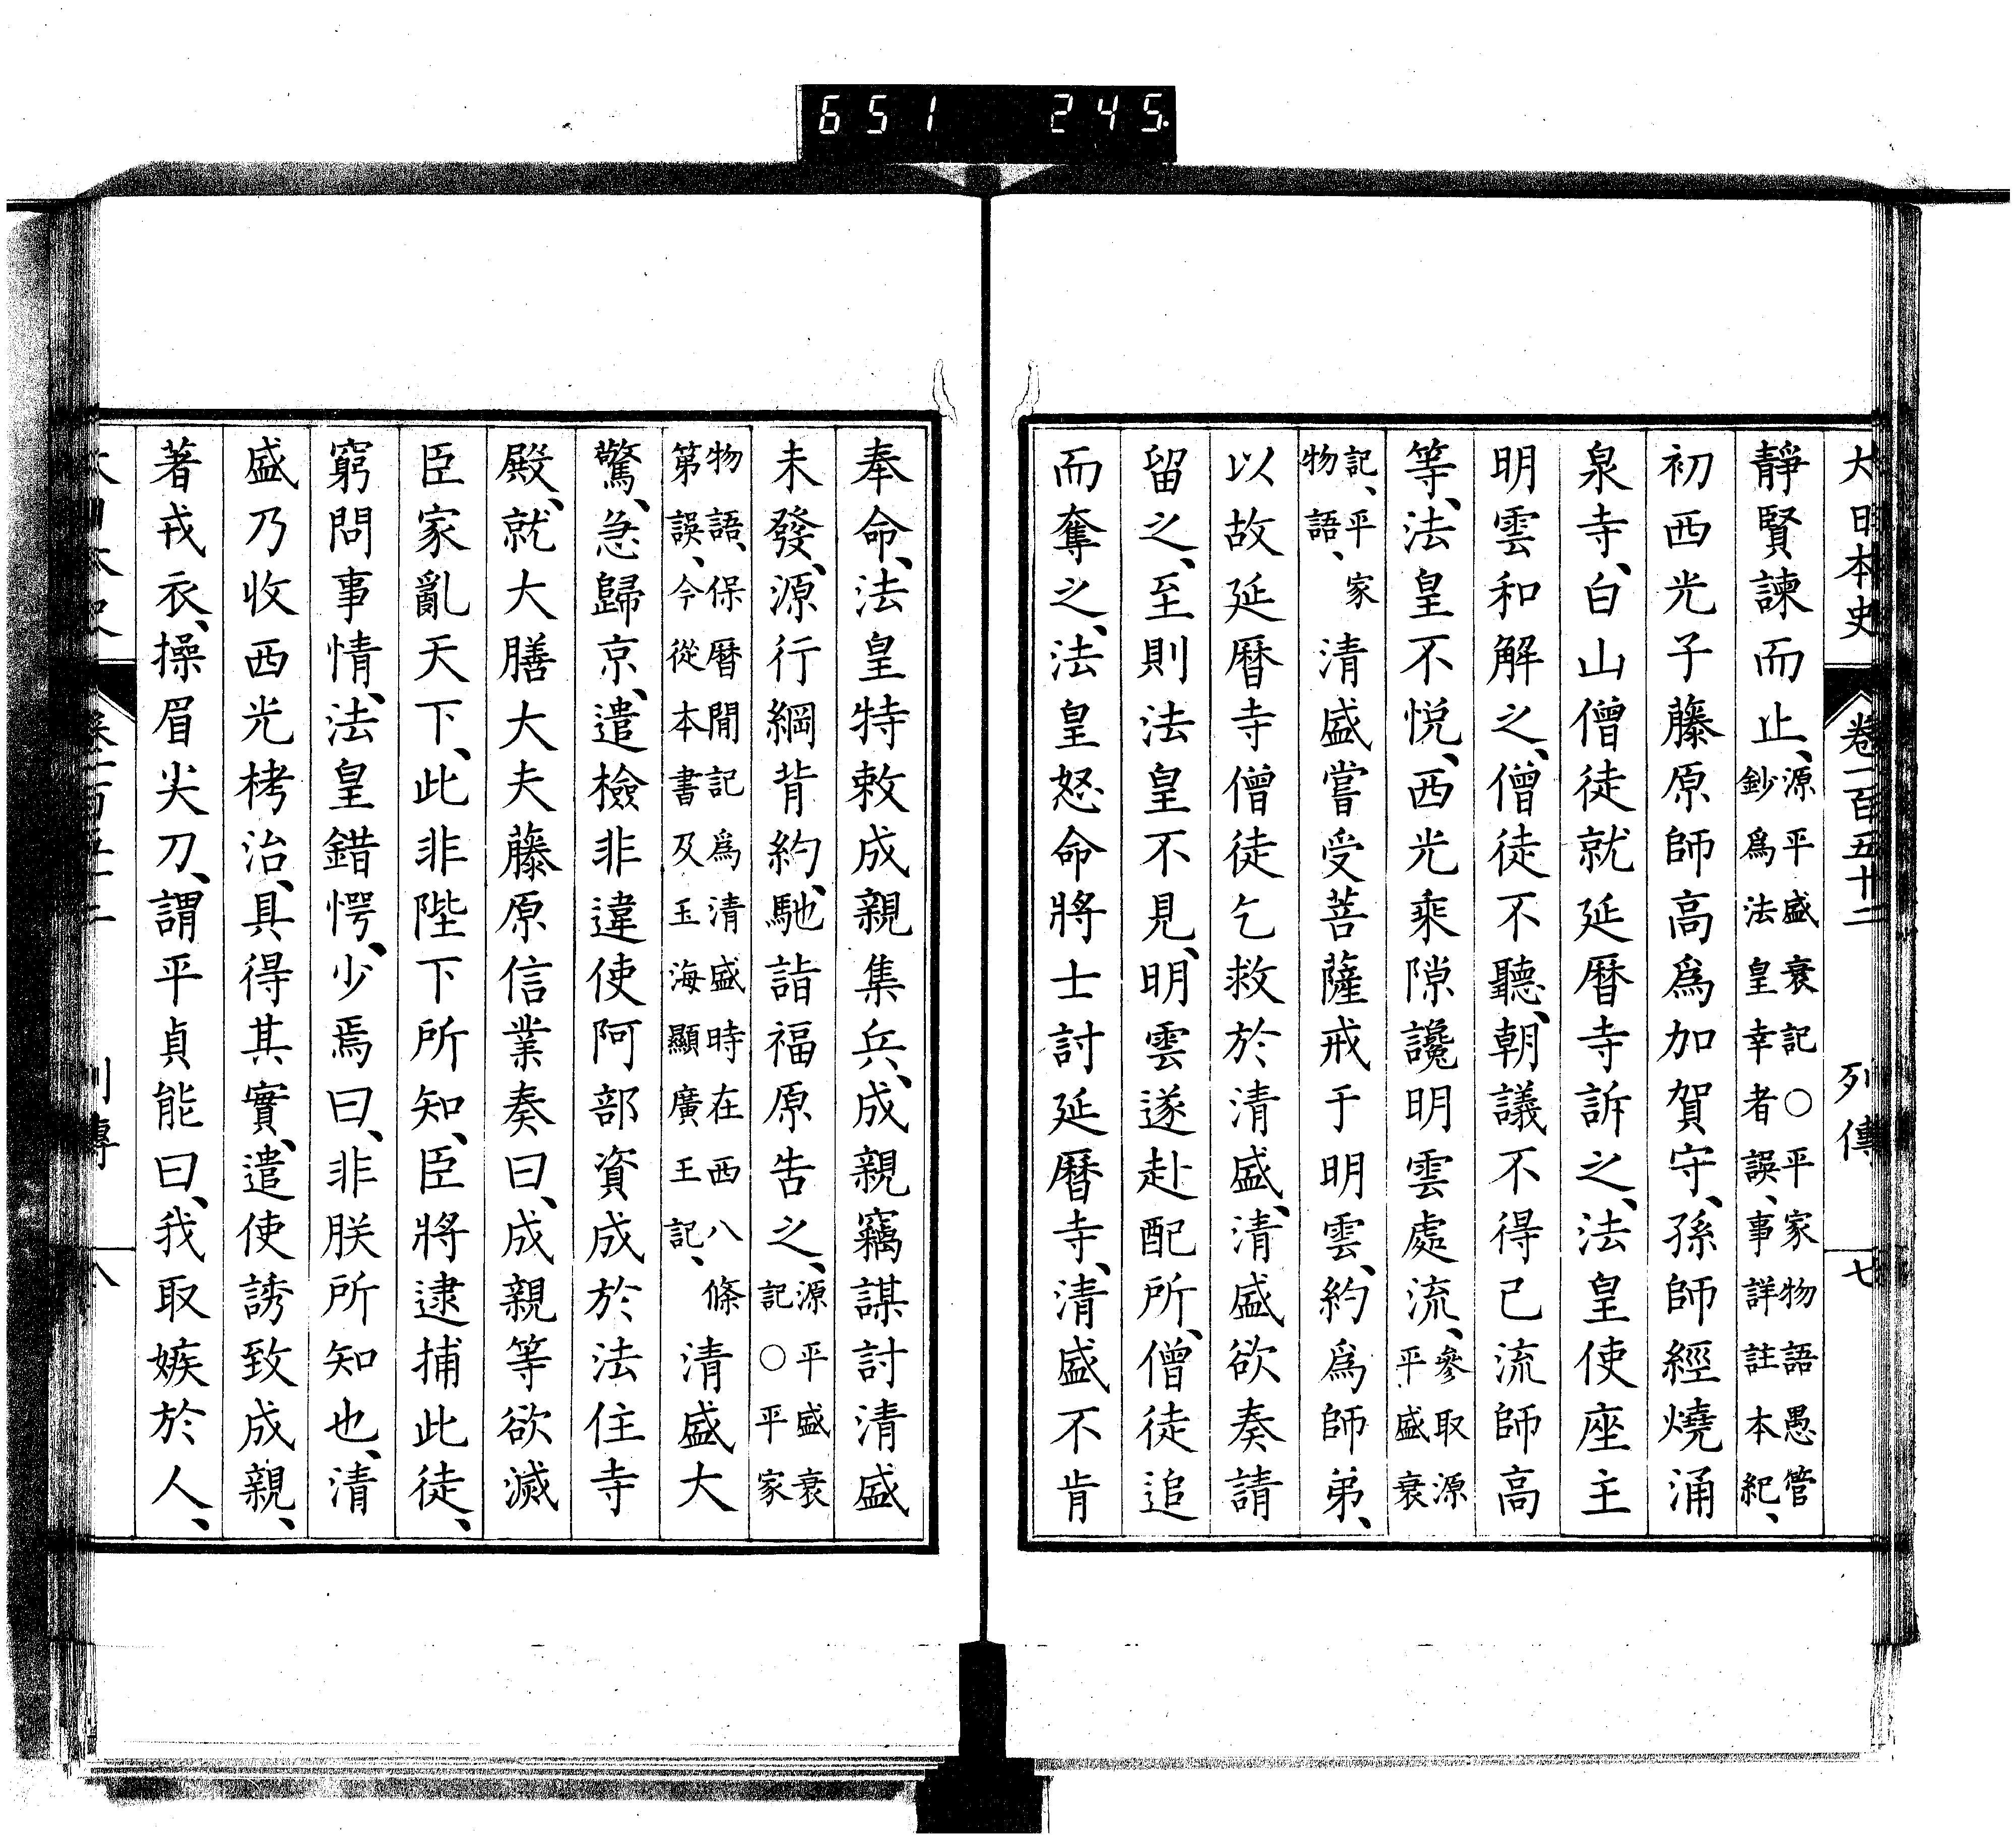 651 245
大日本史 卷一百五十二 列傳 七
靜賢諫而止、源平盛衰記○平家物語愚管鈔爲法皇幸者誤、事詳註本紀、
初西光子藤原師高爲加賀守、孫師經燒涌
泉寺、白山僧徒就延曆寺訴之、法皇使座主
明雲和解之、僧徒不聽、朝議不得已流師高
等、法皇不悅、西光乘隙讒明雲處流、參取源平盛衰
記、平家物語、清盛嘗受菩薩戒于明雲、約爲師弟、
以故延曆寺僧徒乞救於清盛、清盛欲奏請
留之、至則法皇不見、明雲遂赴配所、僧徒追
而奪之、法皇怒命將士討延曆寺、清盛不肯
奉命、法皇特敕成親集兵、成親竊謀討清盛
未發、源行綱背約、馳詣福原告之、源平盛衰記○平家
物語、保曆間記爲清盛時在西八條第誤、今從本書及玉海顯廣王記、清盛大
驚、急歸京、遣檢非違使阿部資成於法住寺
殿、就大膳大夫藤原信業奏曰、成親等欲滅
臣家亂天下、此非陛下所知、臣將逮捕此徒、
窮問事情、法皇錯愕、少焉曰、非朕所知也、清
盛乃收西光栲治、具得其實、遣使誘致成親、
著戎衣、操眉尖刀、謂平貞能曰、我取嫉於人、